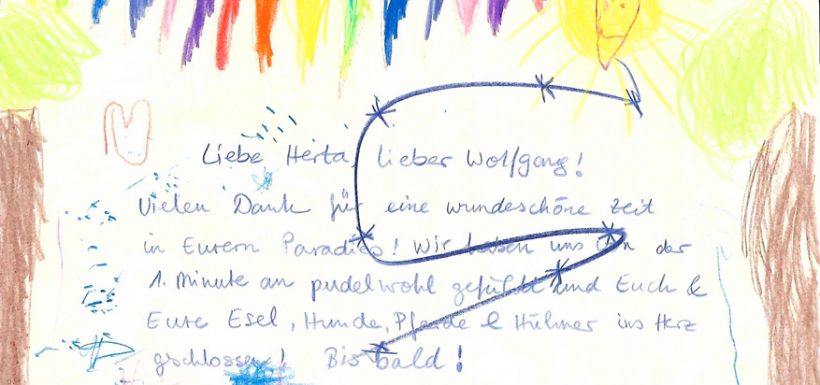 Liebe Herta, lieber Wolfgang!
Vielen Dank für eine wundeschöne Zeit
in Eurem Paradies! Wir haben uns von der
1. Minute an pudelwohl gefühlt und Euch &
Eure Esel, Hunde, Pferde & Hühner ins Herz
gschlossen! Bis bald!